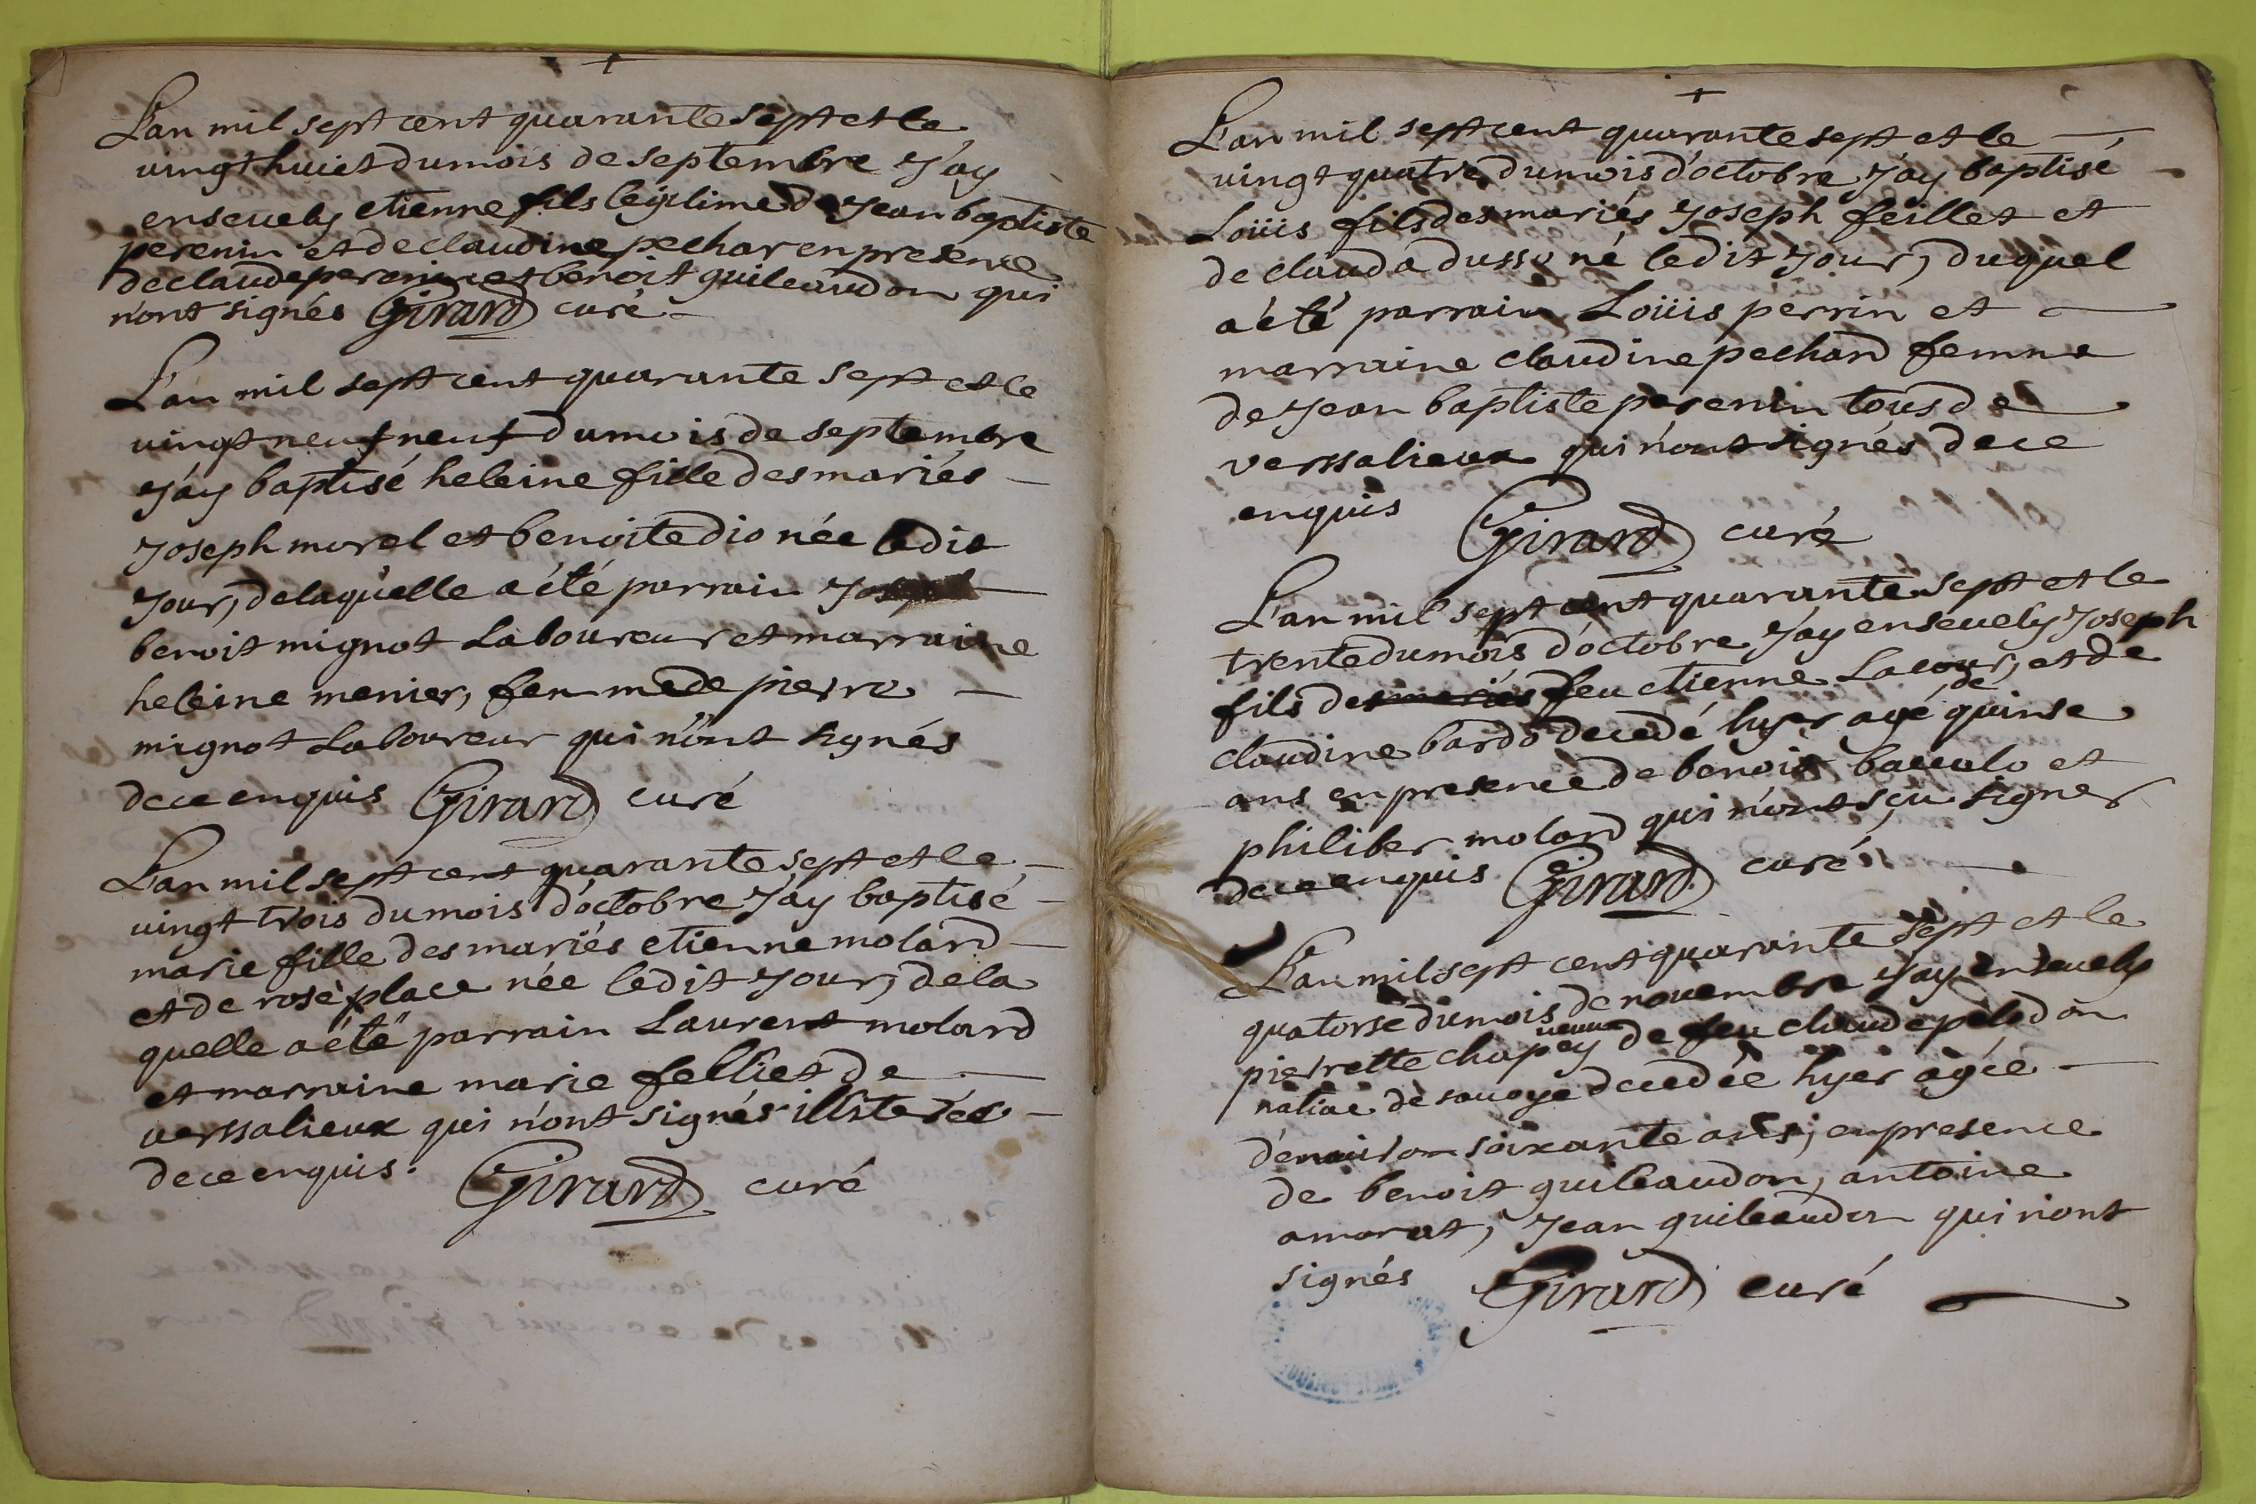 L'an mil sept cent quarante sept et le
vingt huict du mois de septembre J'ay
ensevely etienne fils legitime de Jean baptiste
perenin et de claudine pechar en presence
de claude perenin et benoit guileaudon qui
n'ont signés Girard curé
L'an mil sept cent quarante sept et le
vingt neuf neuf du mois de septembre
J'ay baptisé heleine fille des mariés
Joseph morel et benoite dio née ledit
Jour, de laquelle a été parrain Joseph
benoit mignot Laboureur et marraine
heleine menier, femme de pierre
mignot Laboureur qui n'ont signés
de ce enquis Girard curé
L'an mil sept cent quarante sept et le
vingt trois du mois d'octobre J'ay baptisé
marie fille des mariés etienne molard
et de rose place née ledit Jour, de la
quelle a été parrain Laurent molard
et marraine marie felliet de
verssalieux qui n'ont signés illiterés
de ce enquis. Girard curé
L'an mil sept cent quarante sept et le
vingt quatre du mois d'octobre J'ay baptisé
Loüis fils des mariés Joseph feillet et
de clauda dusso né ledit Jour, duquel
a été parrain Loüis perrin et
marraine claudine pechard femme
de Jean baptiste perenin tous de
verssalieux qui n'ont signés de ce
enquis Girard curé
L'an mil sept cent quarante sept et le
trente du mois d'octobre J'ay ensevely Joseph
fils des mariés feu etienne Lacour, et de
claudine bardo decedé hyer agé de quinse
ans en presence de benoit et
philiber molard qui n'ont sçu signer
de ce enquis Girard curé
L'an mil sept cent quarante sept et le
quatorse du mois de novembre J'ay ensevely
pierrette chapey veuve de feu claude pelodon
native de savoye decedée hyer agée
d'environ soixante ans, en presence
de benoit guileaudon, antoine
amorat, Jean guileaudon qui n'ont
signés Girard curé